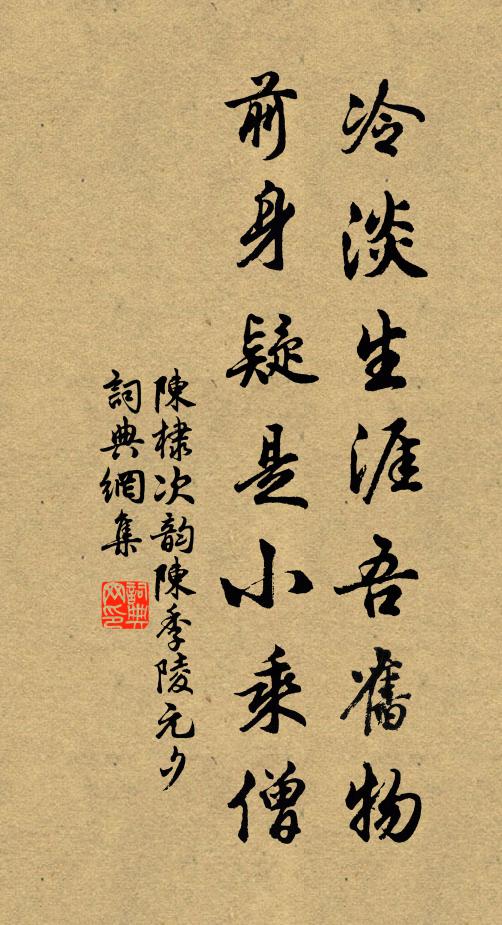 冷淡生涯吾舊物
前身疑是小乘僧
陳棣次韵陳季陵元夕
詞典網集
詞典网印